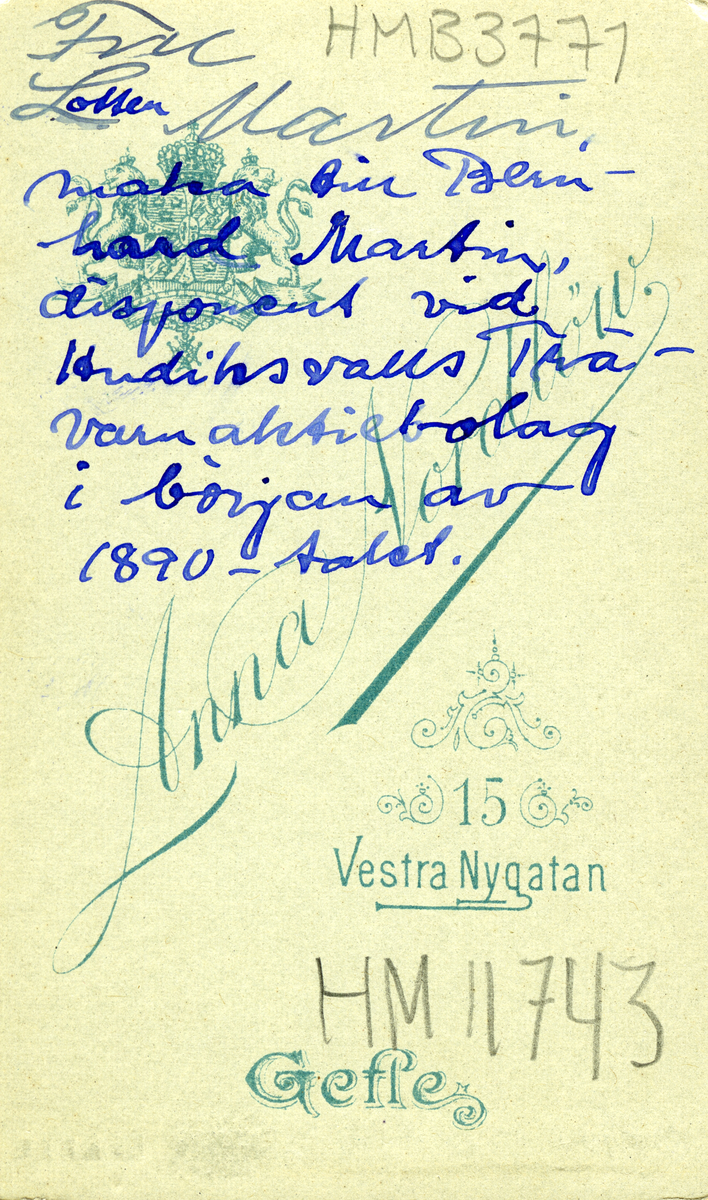 HMB3771
Fru
Lotten Martin,
maka till Bern-
hard Martin,
disponent vid
Hudiksvalls Trä-
varuaktiebolag
i början av
1890-talet.
Anna
15
Vestra Nygatan
HM 11743
Gefle.